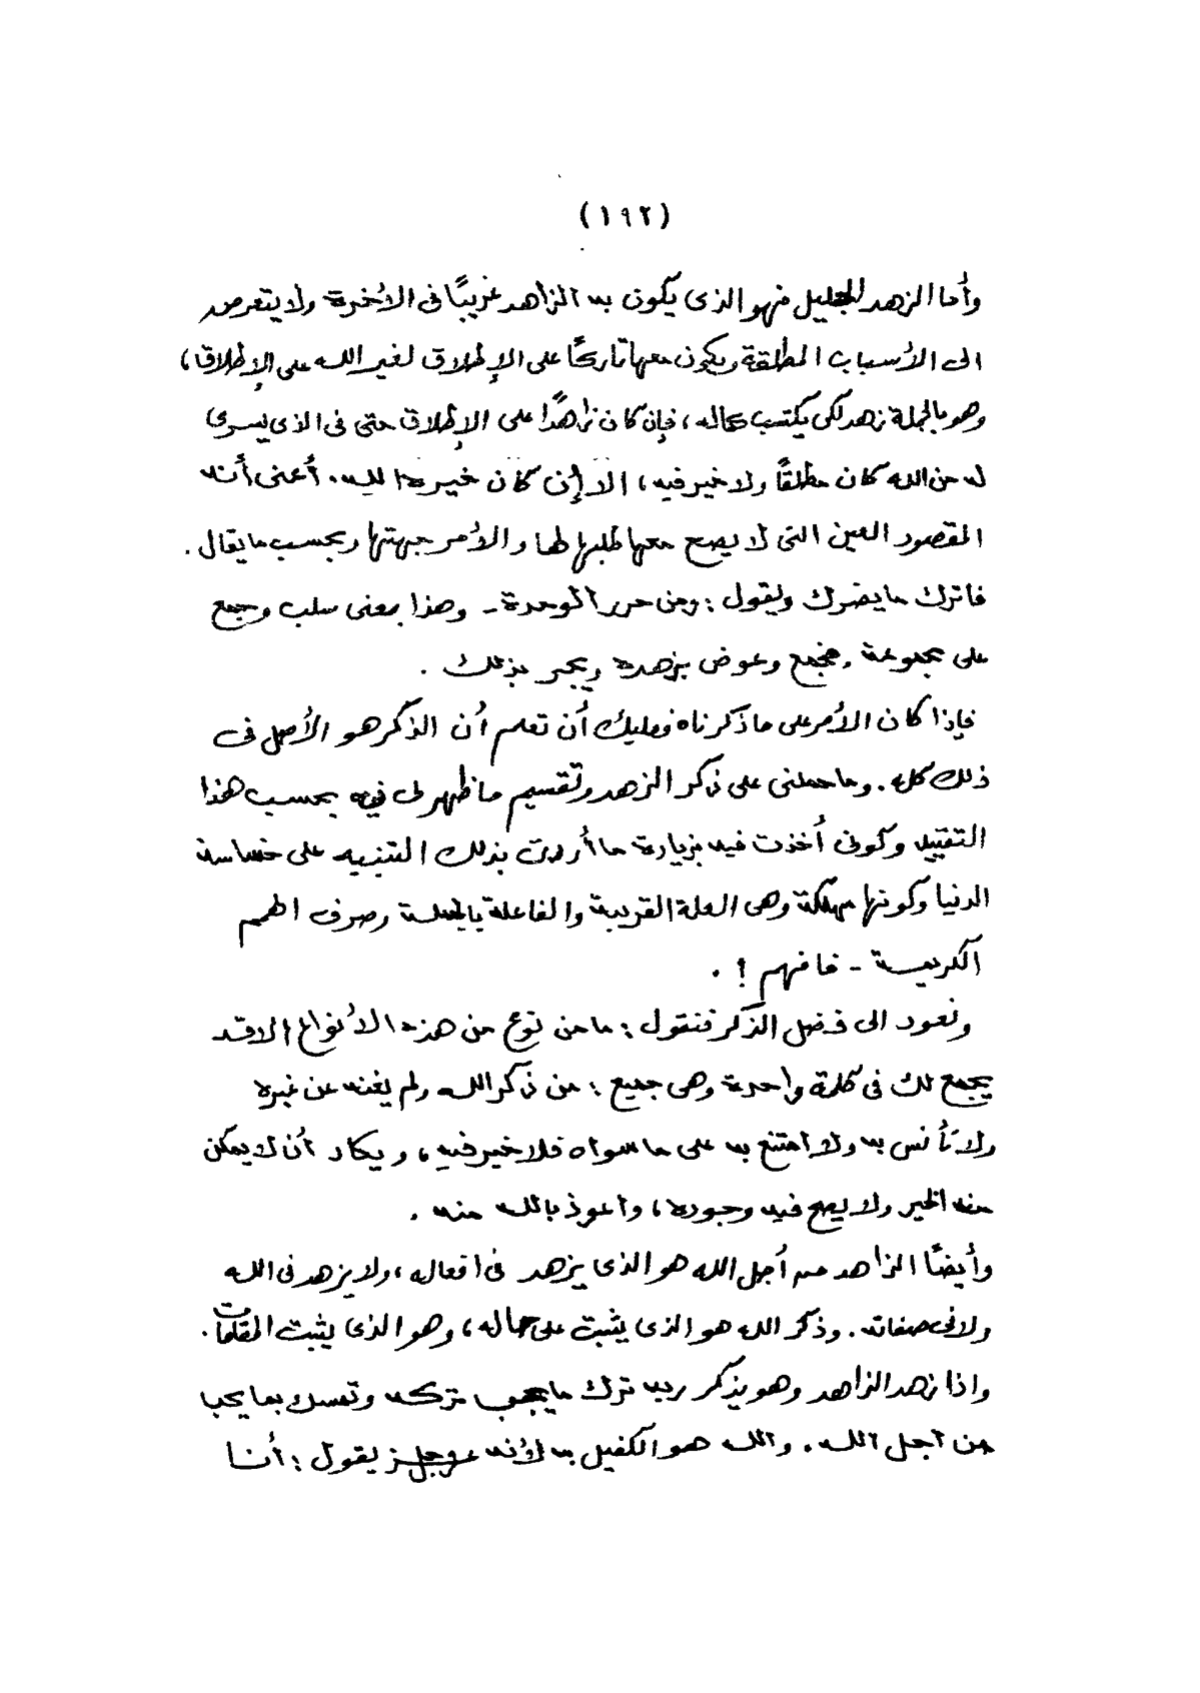 (١٩٢)
وأما الزهد الجليل فهو الذى يكون به الزاهد غريبًا فى الأخرة ولا يتعرض
الى الأسباب المطلقة ويكون معها تاركًا على الإطلاق لغير الله على الإطلاق،
وهو بالجملة زهد لكى يكتسب كماله، فإن كان زاهدًا على الإطلاق حتى فى الذى يسرى
له من الله كان مطلقًا ولا خير فيه، الا إن كان خيره لله. أعنى أنه
المقصود العين التى لا يصح معها طلبها لها والأمر جهتها وبحسب ما يقال.
فاترك ما يضرك ويقول: ومن حرر الوحدة - وهذا بمعنى سلب وجمع
على مجموعة، فجمع وعوض بزهده ويجبر بذلك.
فإذا كان الأمر على ما ذكرناه فعليك أن تعلم أن الذكر هو الأصل فى
ذلك كله. وما حملنى على ذكر الزهد وتقسيم ما ظهر لى فيه بحسب هذا
التقييد وكونى أخذت فيه بزيادة ما أردت بذلك التنبيه على خساسة
الدنيا وكونها مهلكة وهى العلة القريبة والفاعلة وصرف الهمم
الكريمة - فافهم!.
ونعود الى فضل الذكر فنقول: ما من نوع من هذه الأنواع الا قد
يجمع لك فى كلمة واحدة وهى جميع: من ذكر الله ولم يغنه عن غيره
ولا تأنس به ولا امتنع به على ما سواه فلا خير فيه، ويكاد أن لا يمكن
منه الخير ولا يصح فيه وجوده، واعوذ بالله منه.
وأيضًا الزاهد من أجل الله هو الذى يزهد فى افعاله، ولا يزهد فى الله
ولا فى صفاته. وذكر الله هو الذى يثبت على حاله، وهو الذى يثبت المقامات.
واذا زهد الزاهد وهو يذكر ربه ترك ما يجب تركه وتمسك بما يحب
من اجل الله. والله هو الكفيل به لأنه عز وجل يقول: أنا